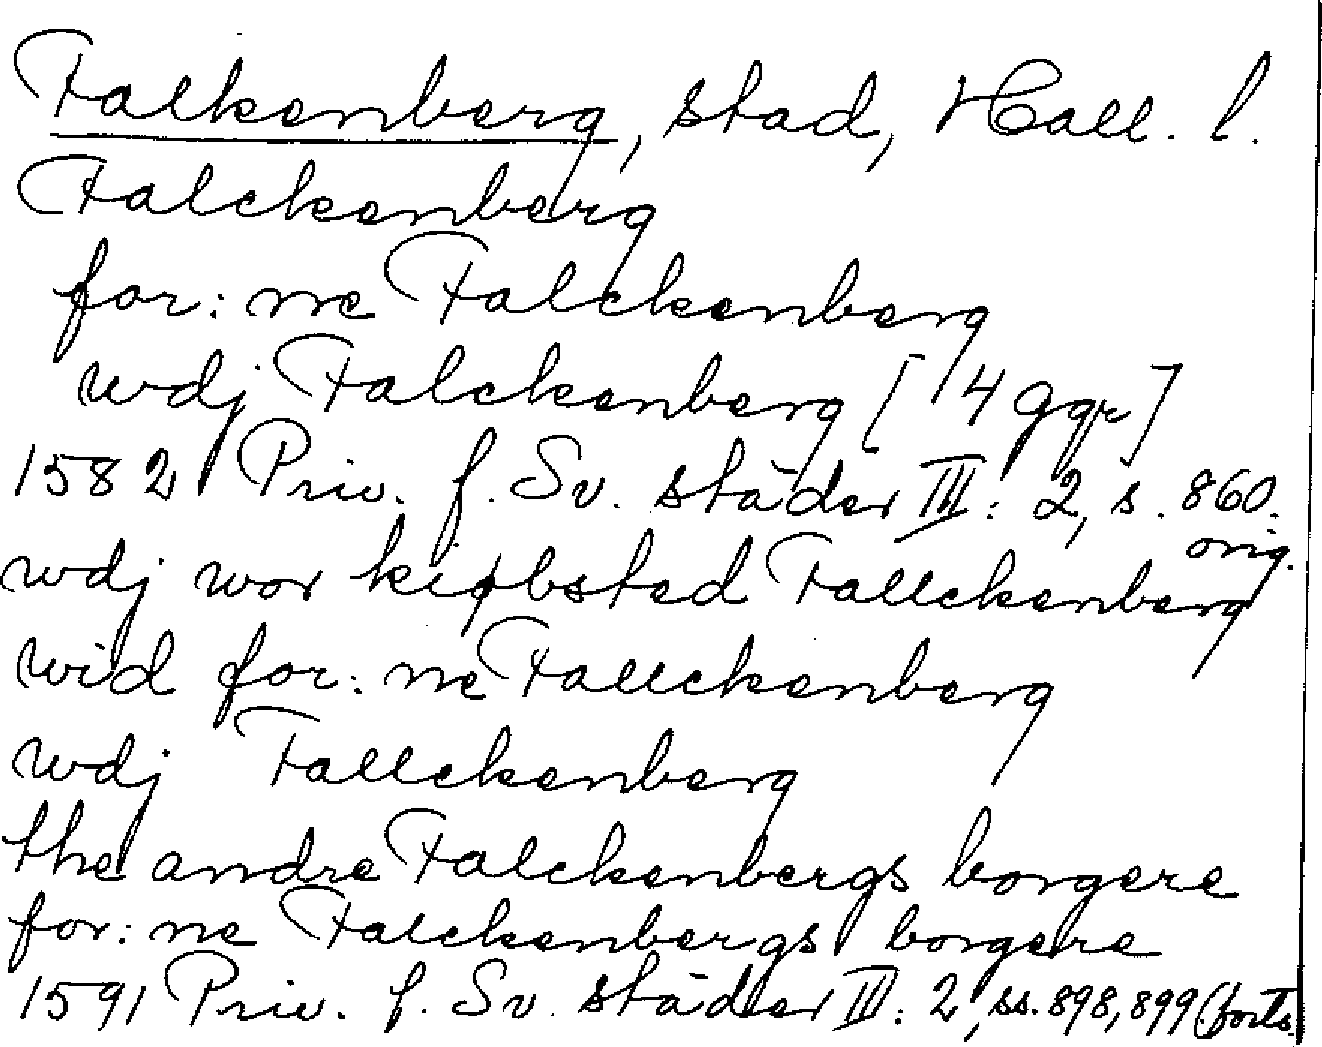 Falkenberg, stad, Hall. l.
Falckenberg
for: ne Falckenberg
wdj Falckenberg [4 ggr]
1582 Priv. f. Sv. städer III: 2, s. 860.
orig.
wdj wor kiøbsted Fallckenberg
wid for: ne Fallckenberg
wdj Fallckenberg
the andre Falckenbergs borgere
for: ne Falckenbergs borgere
1591 Priv. f. Sv. städer III: 2, ss. 898, 899 (forts.